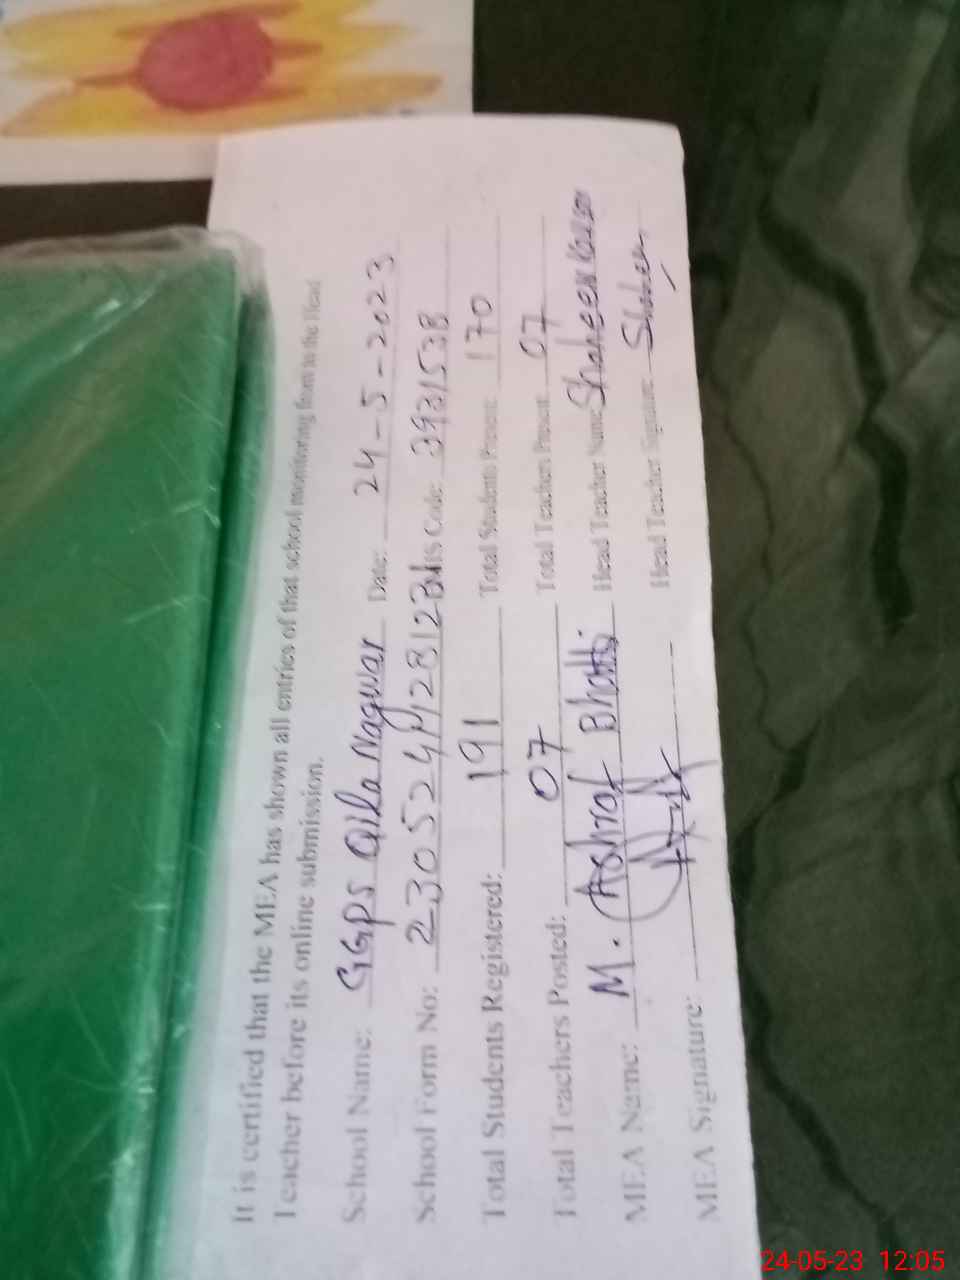 It is certified that the MEA has shown all entries of that school monitoring form to the Head
Teacher before its online submission.
School Name: GGPS Qila Nagwar Date: 24-5-2023
School Form No: Code:
Total Students Registered: 191 Total Students Present: 170
Total Teachers Posted: 07 Total Teachers Present: 07
MEA Name: M. Ashraf Bhatti Head Teacher Name: Shaheen Kausar
MEA Signature: Head Teacher Signature: Shaheen
24-05-23 12:05